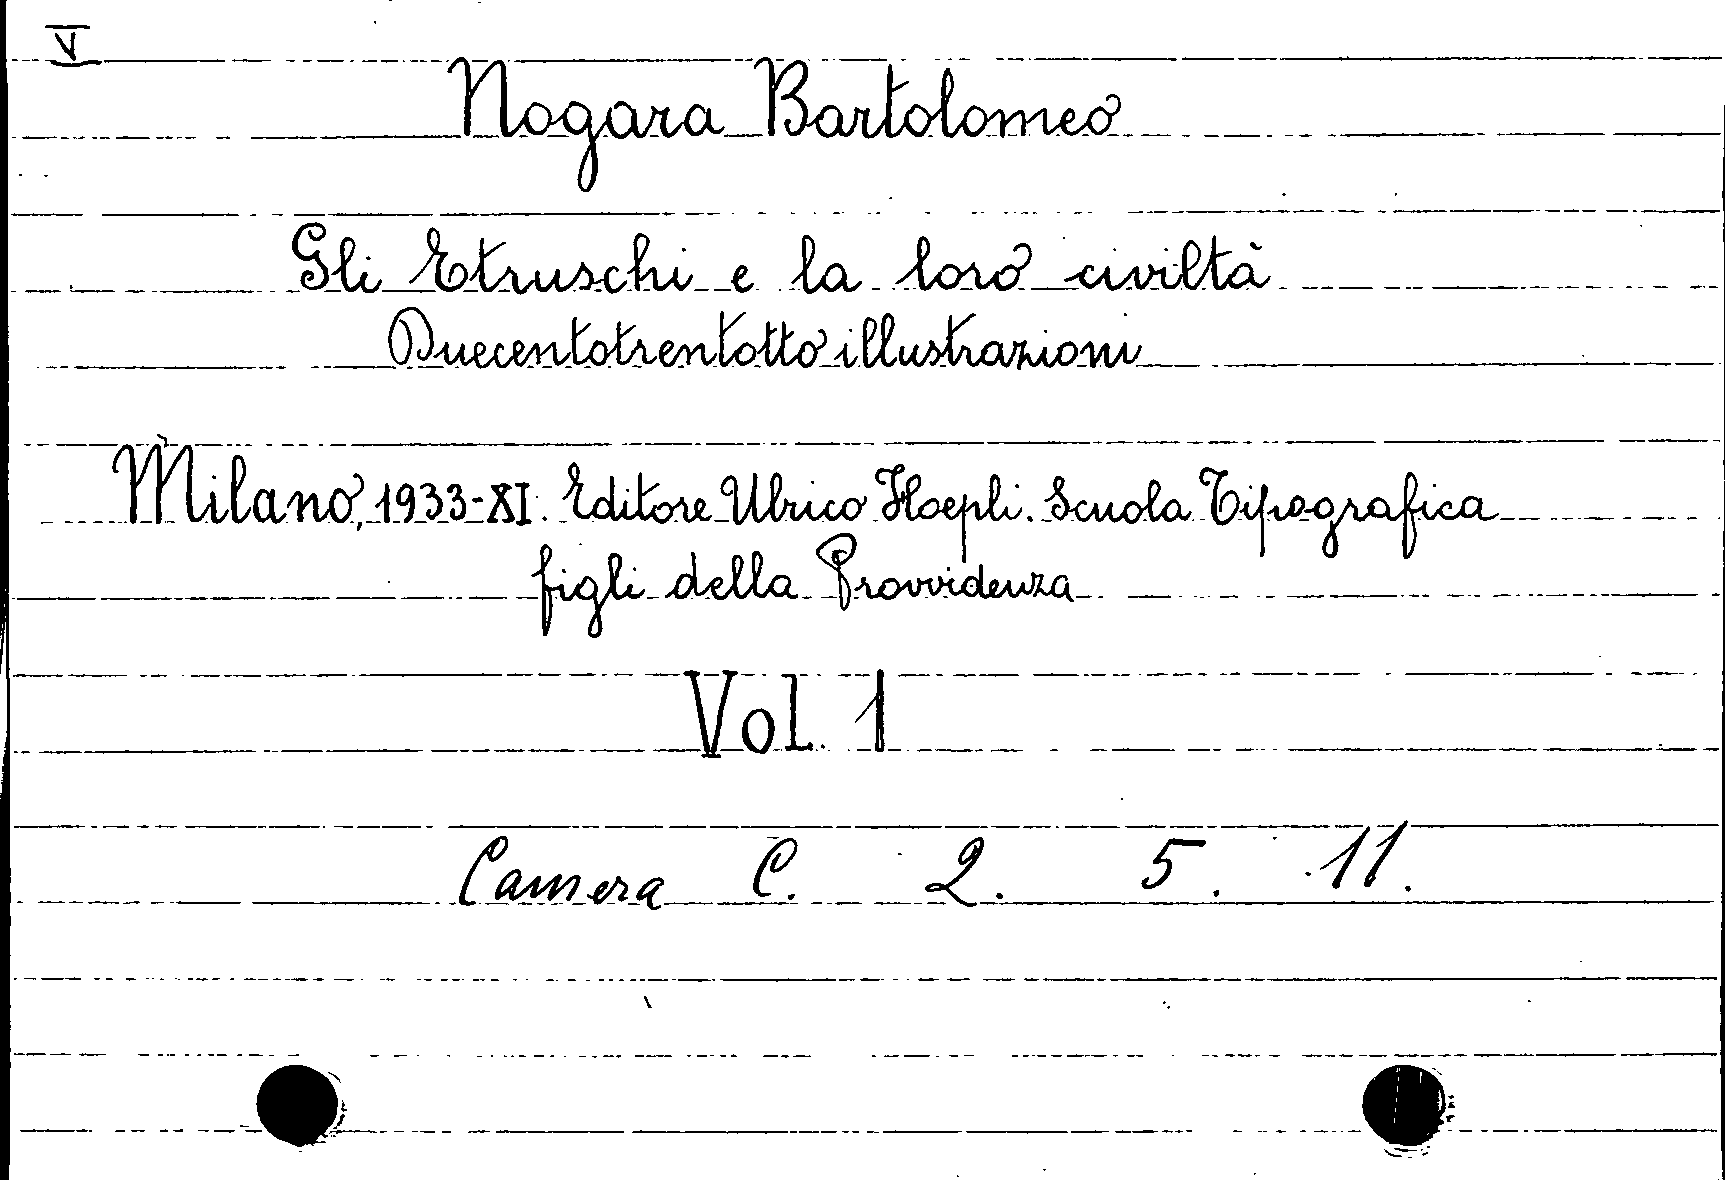 V
Nogara Bartolomeo
Gli Etruschi e la loro civiltà
Duecentotrentotto illustrazioni
Milano, 1933-XI. Editore Ulrico Hoepli. Scuola Tipografica
figli della Provvidenza
Vol. 1
Camera C. 2. 5. 11.